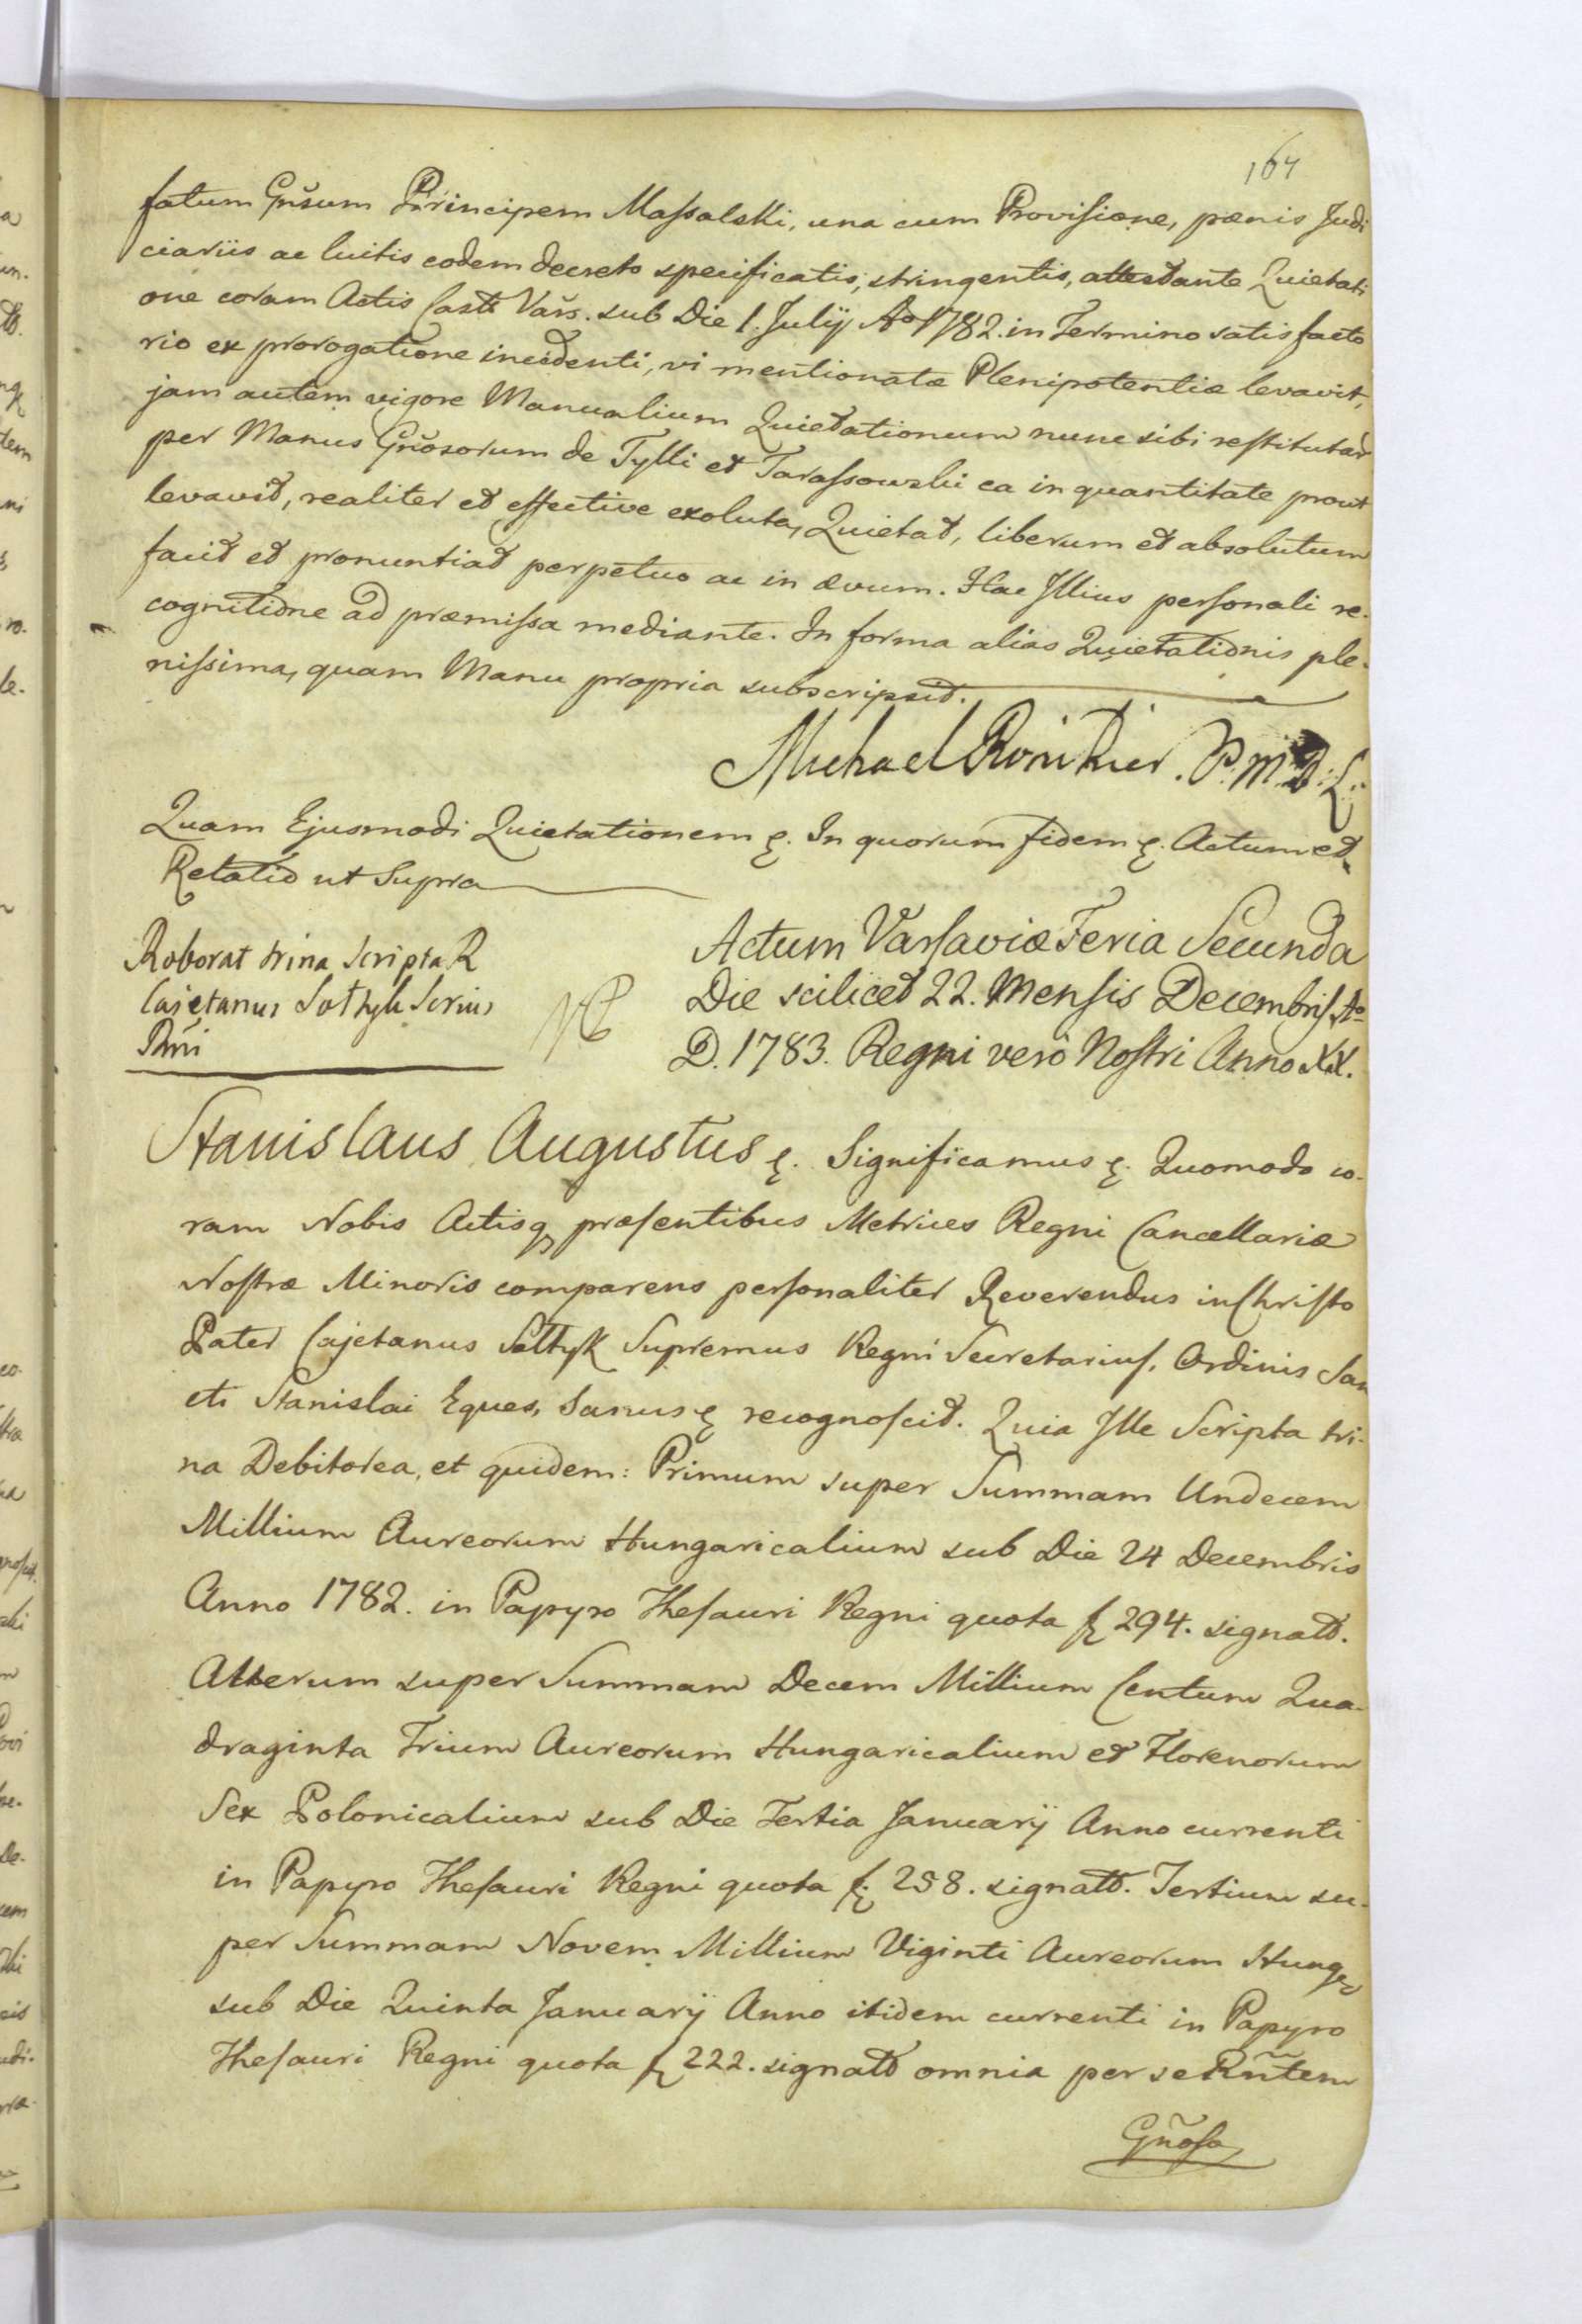 164
fatum Gnsum Principem Massalski, una cum Provisione, pænis Judi
ciariis ac luitis eodem decreto specificatis, stringentis, attestante Quietati
one coram Actis Castr Vars. sub Die 1. Julij Ao 1782. in Termino satisfacto
rio ex prorogatione incidenti, vi mentionatæ Plenipotentiæ levavit,
jam autem vigore Manualium Quietationum nunc sibi restitutar
per Manus Gnosorum de Tylli et Tarassowski ea in quantitate prout
levavit, realiter et effective exoluta, Quietat, liberum et absolutum
facit et pronuntiat perpetuo ac in ævum. Hac Illius personali re-
cognitione ad præmissa mediante. In forma alias Quietationis ple-
nissima, quam Manu propria subscripsit.
Michael Ronikier. P. M. D: L:
Quam Ejusmodi Quietationem ę. In quorum fidem ę. Actum et
Relatio ut Supra
Roborat trina Scripta R
Cajetanus Sołtyk Srius
Rni
Actum Varsaviæ Feria Secunda
Die scilicet 22. Mensis Decembris Ao
D. 1783. Regni vero Nostri Anno XX.
Stanislaus Augustus ę. Significamus ę. Quomodo co-
ram Nobis Actisq præsentibus Metrices Regni Cancellariæ
Nostræ Minoris comparens personaliter Reverendus in Christo
Pater Cajetanus Sołtyk Supremus Regni Secretarius, Ordinis San
cti Stanislai Eques, Sanus ę recognoscit. Quia Ille Scripta tri-
na Debitorea, et quidem: Primum super Summam Undecem
Millium Aureorum Hungaricalium sub Die 24 Decembris
Anno 1782. in Papyro Thesauri Regni quota f 294. signatt.
Alterum super Summam Decem Millium Centum Qua-
draginta Trium Aureorum Hungaricalium et Florenorum
Sex Polonicalium sub Die Tertia Januarij Anno currenti
in Papyro Thesauri Regni quota f: 258. signatt. Tertium su-
per Summam Novem Millium Viginti Aureorum Hung
sub Die Quinta Januarij Anno itidem currenti in Papyro
Thesauri Regni quota f 222. signatt omnia per se Rñtem
Gñosa